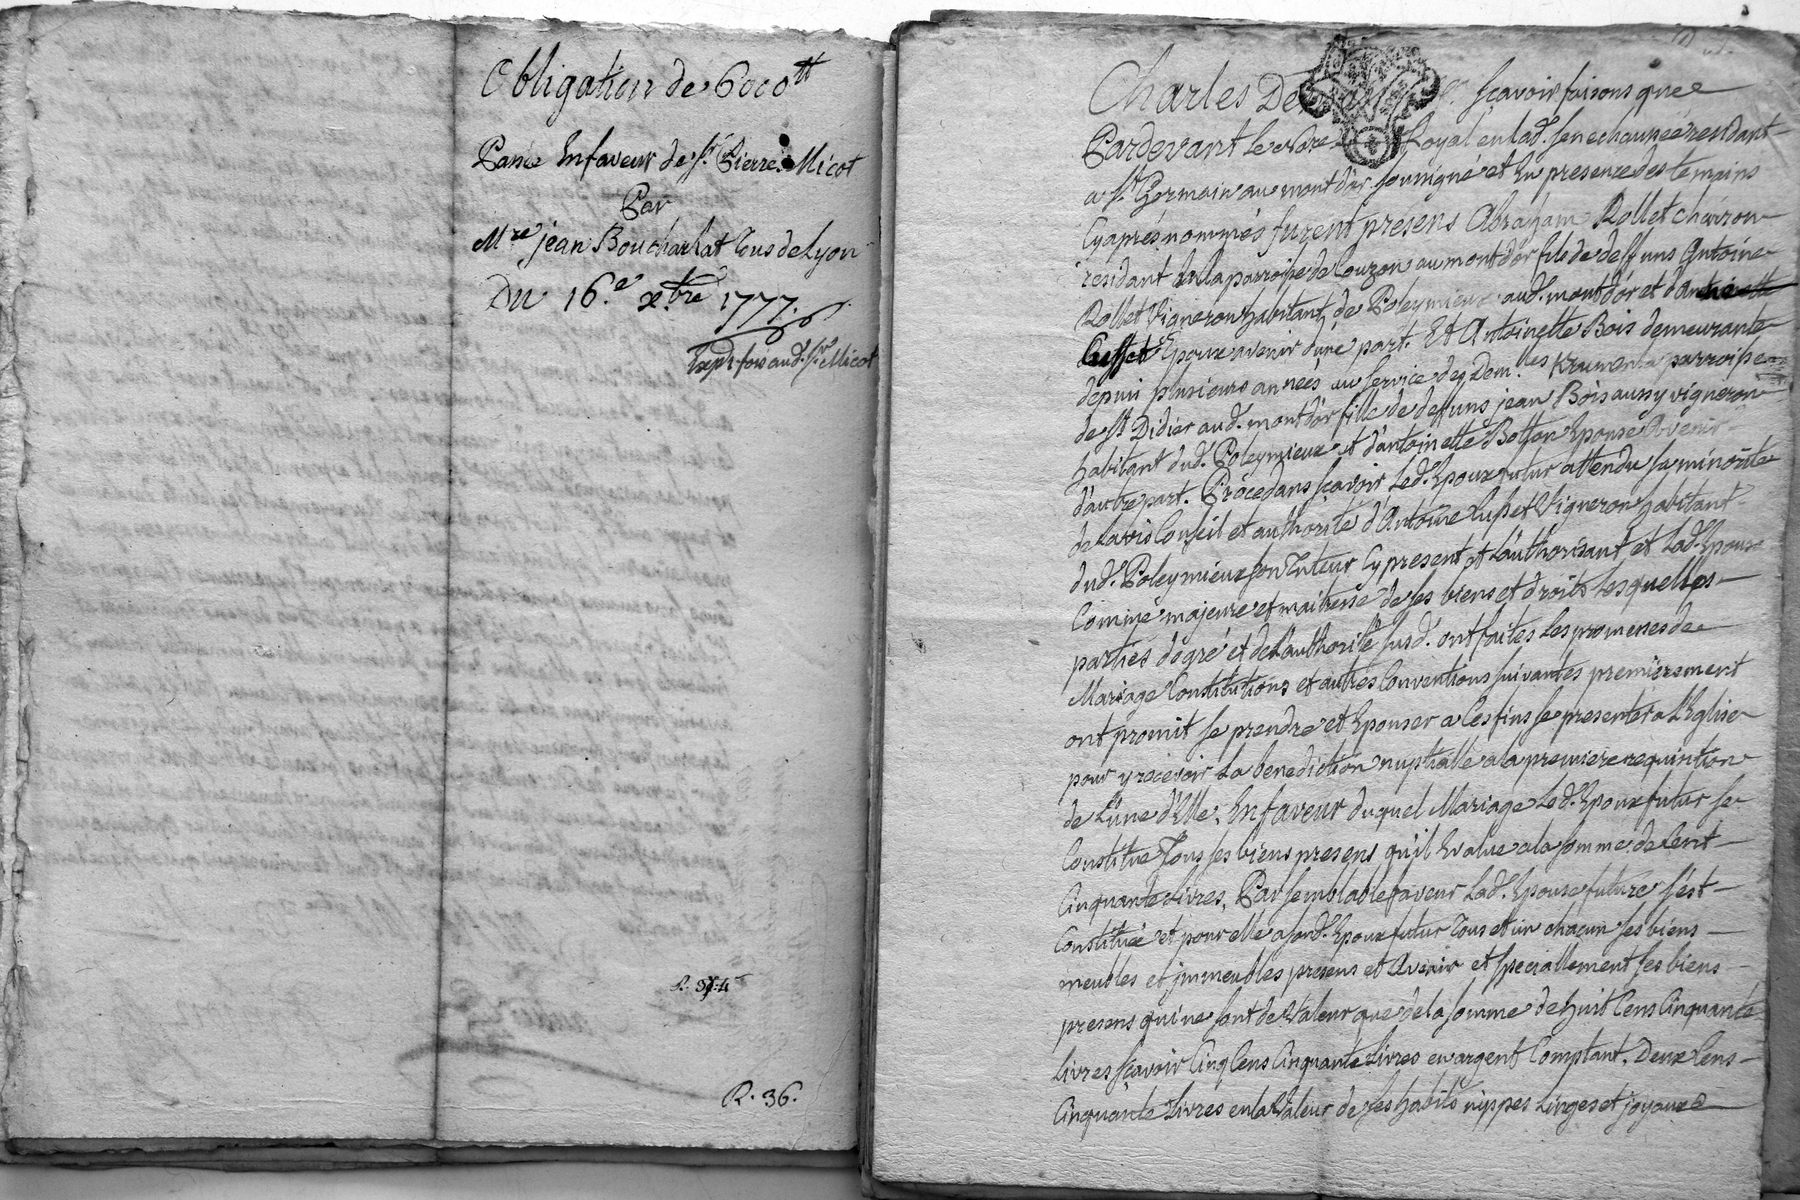 Obligation de 6000tt
Passée En faveur de Sr. Pierre Micot
Par
Mre. jean Boucharlat Tous de Lyon
Du 16e. xbre 1777.
Expt. fois aud. Sr. Micot
R. 36.
Charles De Sçavoir faisons que
Pardevant le Nore. Royal en lad. Senechaussée residant
a St. Germain au mont d'or soussigné et En presence des temoins
Cy après nommés furent presens Abraham Rollet charron
residant En la parroisse de Couzon au mont d'or fils de deffuns Antoine
Rollet Vigneron habitant de Poleymieux aud. mont d'or et d'Antoinette
Cusset Epoux avenir d'une part. Et Antoinette Bois demeurante
depuis plusieurs années au service des Demlles. parroisse
de St. Didier aud. mont d'or fille de deffuns jean Bois aussy vigneron
habitant dud. Poleymieux et d'antoinette Epouse Avenir
d'autre part. Procedans sçavoir Led. Epoux futur attendu sa minorite
de L'avis Conseil et authorité d'Antoine Cusset Vigneron habitant
dud. Poleymieux son Tuteur Cy present et L'authorisant et Lad. Epouse
Comme majeure et maitresse de ses biens et droits Lesquelles
parties de gré et de L'authorité susd. ont faites Les promesses de
Mariage Constitutions et autres Conventions suivantes premierement
ont promit se prendre et Epouser a Ces fins se presenter a L'Eglise
pour y recevoir La benediction nuptialle a la premiere requisition
de L'une d'Elle, En faveur duquel Mariage Led. Epoux futur se
Constitue Tous ses biens presens qu'il Evalue a la somme de Cent
Cinquante Livres, Par semblable faveur Lad. Epouse future s'est
Constituée et pour elle a sond. Epoux futur Tous et un chacun ses biens
meubles et jmmeubles presens et Avenir et speciallement ses biens
presens qui ne sont de Valeur que de la somme de huit Cens Cinquante
Livres sçavoir Cinq Cens Cinquante Livres en argent Comptant, Deux Cens
Cinquante Livres en la Valeur de ses habits nippes Linges et joyaux